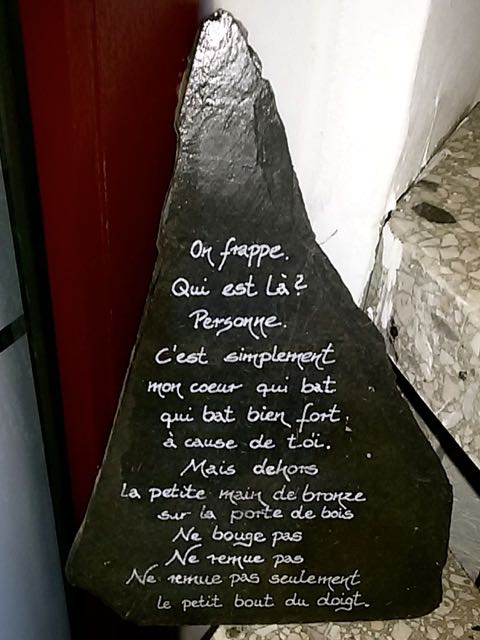 On frappe.
Qui est Là?
Personne.
C'est simplement
mon coeur qui bat
qui bat bien fort
à cause de toi.
Mais dehors
la petite main de bronze
sur la porte de bois
Ne bouge pas
Ne remue pas
Ne remue pas seulement
le petit bout du doigt.